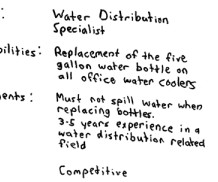 : Water Distribution
Specialist
bilities: Replacement of the five
gallon water bottle on
all office water coolers
ents: Must not spill water when
replacing bottles.
3-5 years experience in a
water distribution related
field
Competitive